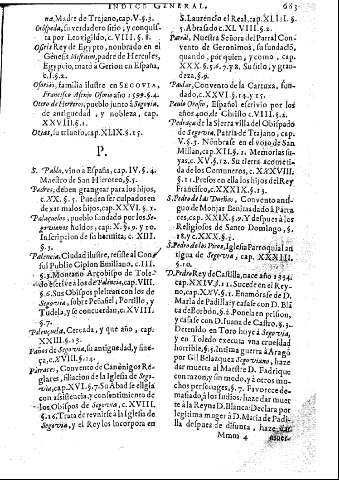 INDICE GENERAL. 683
na, Madre de Trajano, cap. V. §. 3.
su verdadero sitio, y conquista
por Leovigildo, c. VIII. §. 8.
Osiris Rey de Egypto, nombrado en el
Génesis Mesraim, padre de Hercules,
Egipcio, mató à Gerion en España,
c. I. §. 2.
Osorios, familia ilustre en SEGOVIA,
Francisco Alexio Osorio año 1599. §. 4.
Otero de Herreros, pueblo junto à Segovia,
de antiguedad, y nobleza, cap.
XXVIII. §. 1.
su triunfo, cap. XLIX. §. 15.
P.
S. Pablo, vino à España, cap. IV. §. 4.
Maestro de San Hieroteo, §. 5.
Padres, deben grangear para los hijos,
c. XX. §. 7. Pueden ser culpados en
dexar malos hijos, cap. XXVI. §. 1.
Palazuelos, pueblo fundado por los Segovianos
huidos; cap. X. §. 9. y 10.
Inscripcion de su bautista, c. XIII.
§. 3.
Palencia, Ciudad ilustre, resiste al Consul
Publio Cipion Emiliano, c. III.
§. 3. Montano Arçobispo de Toledo
escrive à los de Palencia, cap. VIII.
§. 6. Sus Obispos pleitean con los de
Segovia, sobre Peñafiel, Portillo, y
Tudela, y se concuerdan, c. XVIII.
§. 7.
Palençuela, Cercada, y què año, cap.
XXIII. §. 13.
Paños de Segovia, su antiguedad, y fineça,
c. XVIII. §. 14.
Parraces, Convento de Canónigos Reglares,
filiacion de la Iglesia de Segovia,
cap. XVI. §. 7. Su Abad se eligia
con asistencia, y consentimiento de
los Obispos de Segovia, c. XVIII.
§. 16. Trata de revnirse à la Iglesia de
Segovia, y el Rey los incorpora en
S. Laurencio el Real, cap. XLIII. §.
5. Abrado c. XLVIII. §. 2.
Parral, Nuestra Señora del Parral Convento
de Geronimos, su fundadò,
quando, por quien, y como, cap.
XXX. §. 5. 6. 7. 8. Su sitio, y grandeza,
§. 9.
Paular, Convento de la Cartuxa, fundado,
c. XXVI. §. 14. y 15.
Paulo Orosio, Español escrivio por los
años 400, de Christo c. VIII. §. 2.
Pedraça de la Sierra villa del Obispado
de Segovia, Patria de Trajano, cap.
V. §. 3. Nòmbrase en el voto de San
Millan, cap. XII. §. 1. Memorias suyas,
c. XV. §. 12. Su tierra acometida
de los Comuneros, c. XXXVIII.
§. 11. Presos en ella los hijos del Rey
Francisco, c. XXXIX. §. 13.
S. Pedro de las Dueñas, Convento antiguo
de Monjas Benitas dado à Parraces,
cap. XXIX. §. 9. Y despues à los
Religiosos de Santo Domingo, §.
18. y c. XXX. §. 1.
S. Pedro de los Picos, Iglesia Parroquial antigua
de Segovia, cap. XXXIII.
§. 10.
D. Pedro Rey de Castilla, nace año 1334,
cap. XXIV. §. 11. Sucede en el Reyno,
cap. XXV. §. 1. Enamòrase de D.
Maria de Padilla; y casase con D. Blanca
de Borbòn, §. 2. Ponela en prision,
y casase con D. Juana de Castro, §. 3.
Detenido en Toro huyò à Segovia,
y en Toledo executa vna crueldad
horrible, §. 5. Intima guerra à Aragò
por Gil Belazquez Segoviano, haze
dar muerte al Maestre D. Fadrique
con razon, y sin modo, y à otros muchos
personages, §. 7. Favorece demasiado,
à los Indios; haze dar muerte
à la Reyna D. Blanca: Declara por
legitima muger à D. Maria de Padilla
despues de difunta, haze dar
Mmmm 4 muer-